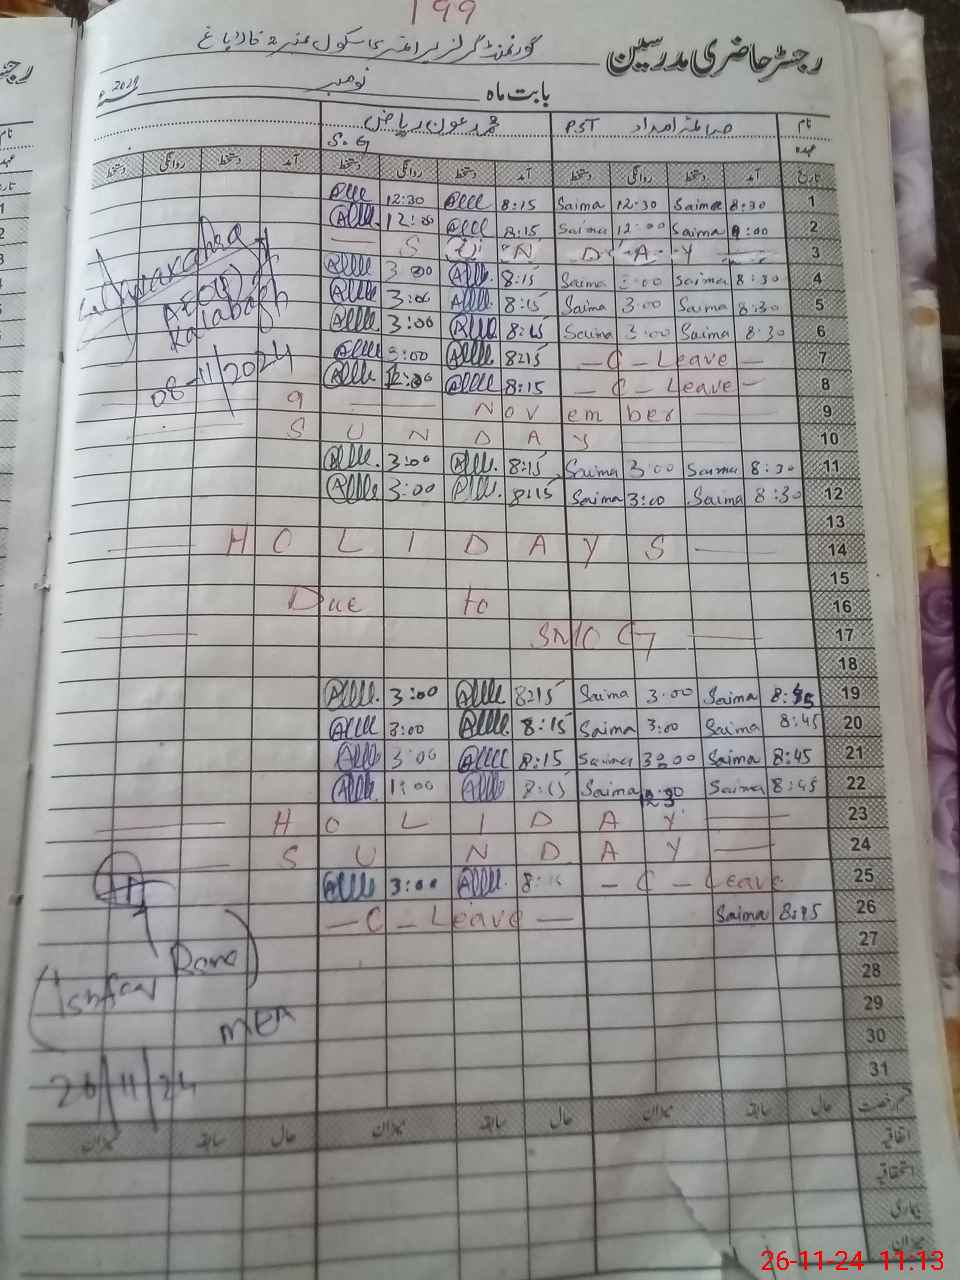 199
رجسٹر حاضری مدرسین گورنمنٹ گرلز پرائمری سکول
بابت ماہ نومبر 2024ء
نام صائمہ امداد PST محمد عون ریاض
عہدہ S.G
تاریخ آمد دستخط روانگی دستخط آمد دستخط روانگی دستخط آمد دستخط روانگی دستخط
1 8:30 Saima 12:30 Saima 8:15 12:30
2 9:00 Saima 12:00 Saima 8:15 12:00
3 S U N D A Y
4 8:30 Saima 3:00 Saima 8:15 3:00
5 8:30 Saima 3:00 Saima 8:15 3:00
6 8:30 Saima 3:00 Saima 8:15 3:00
7 - C - Leave - 8215 3:00
8 - C - Leave - 8:15 12:00
9 9 Nov em ber
10 S U N D A Y
11 8:30 Saima 3:00 Saima 8:15 3:00
12 8:30 Saima 3:00 Saima 8:15 3:00
13
14 H O L I D A Y S
15
16 Due to
17 SMOG
18
19 Saima 3:00 Saima 8215 3:00
20 8:45 Saima 3:00 Saima 8:15 3:00
21 8:45 Saima Saima 8:15 3:00
22 8:45 Saima 12:30 Saima 8:15 1:00
23 H O L I D A Y
24 S U N D A Y
25 - C - Leave 3:00
26 8:45 Saima - C - Leave -
27
28
29
30
31
قسم رخصت حال سابقہ میزان حال سابقہ میزان حال سابقہ میزان
اتفاقیہ
استحقاقیہ
بیماری
میزان
AEO
Kalabagh
08-11/2024
MEA
26/11/24
26-11-24 11:13